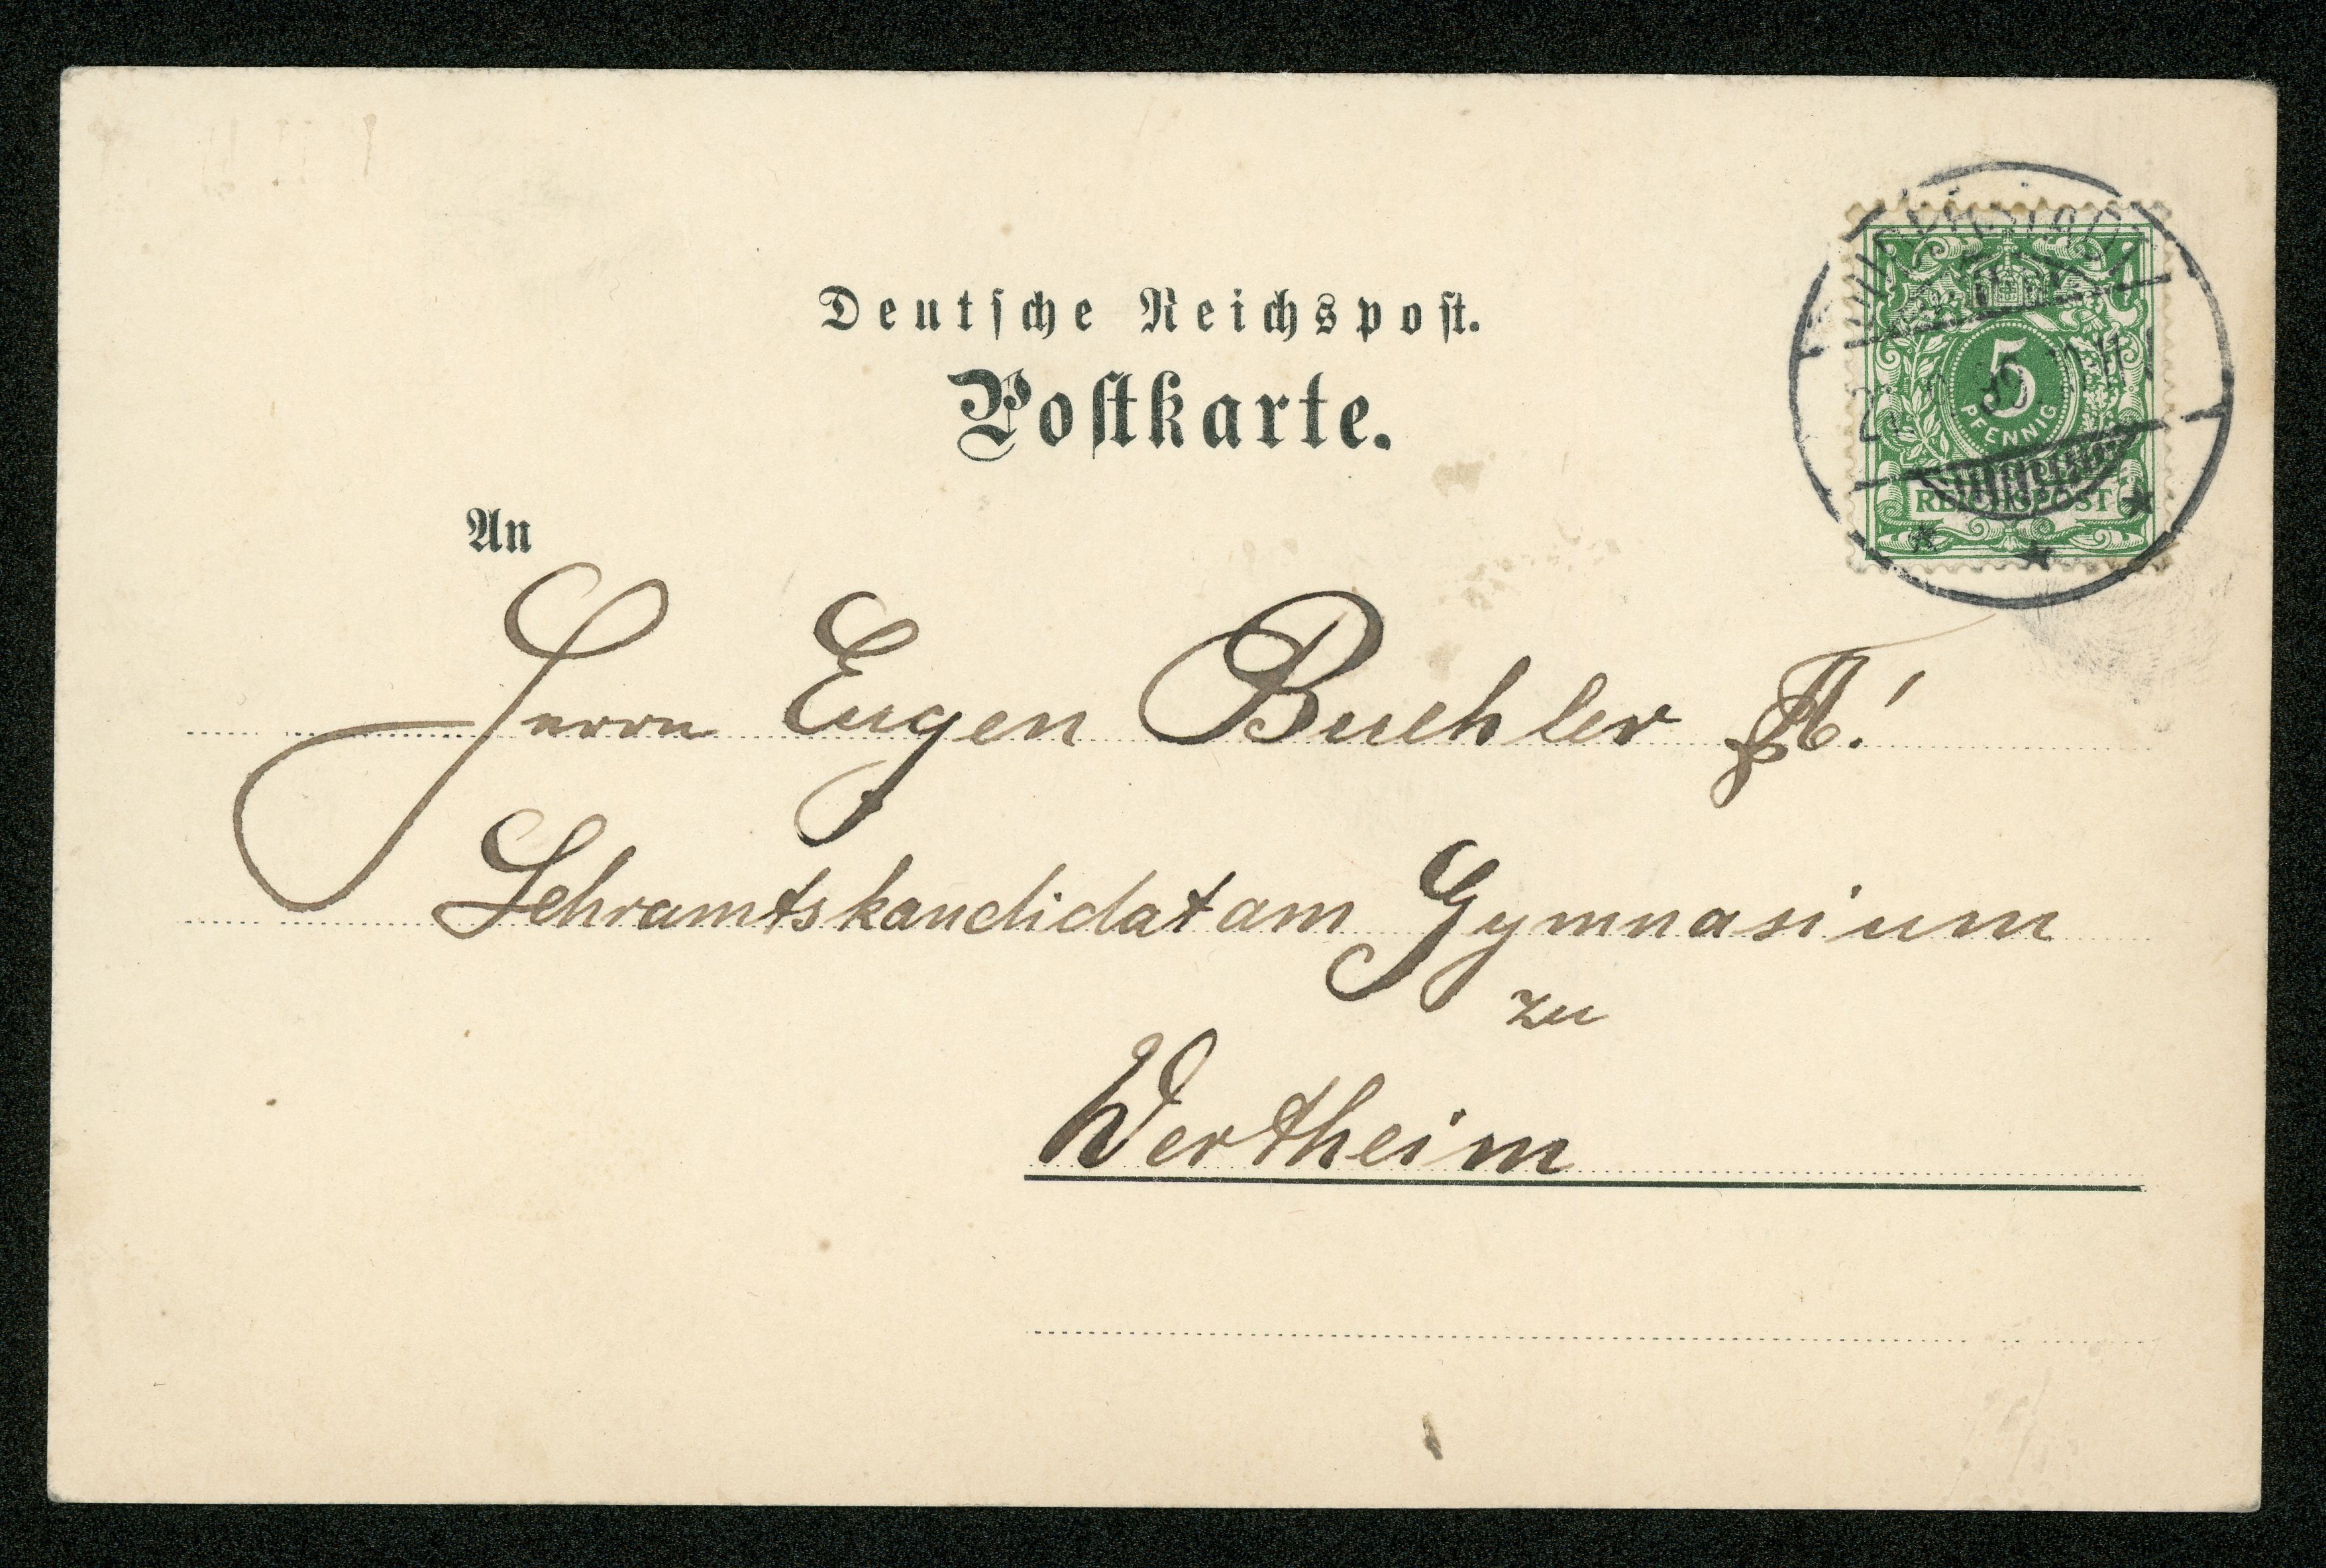 Deutsche Reichspost.
Postkarte.
5
PFENNIG
REICHSPOST
An
Herrn Eugen Buehler
Lehramtskandidat am Gymnasium
zu
Wertheim